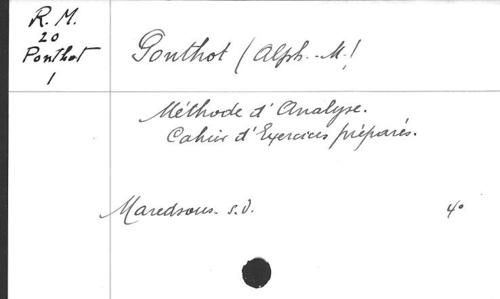 R. M.
20
Ponthot
1
Ponthot (Alph.-M.)
Méthode d'Analyse.
Cahier d'Exercices préparés.
Maredsous. s.d.
4°